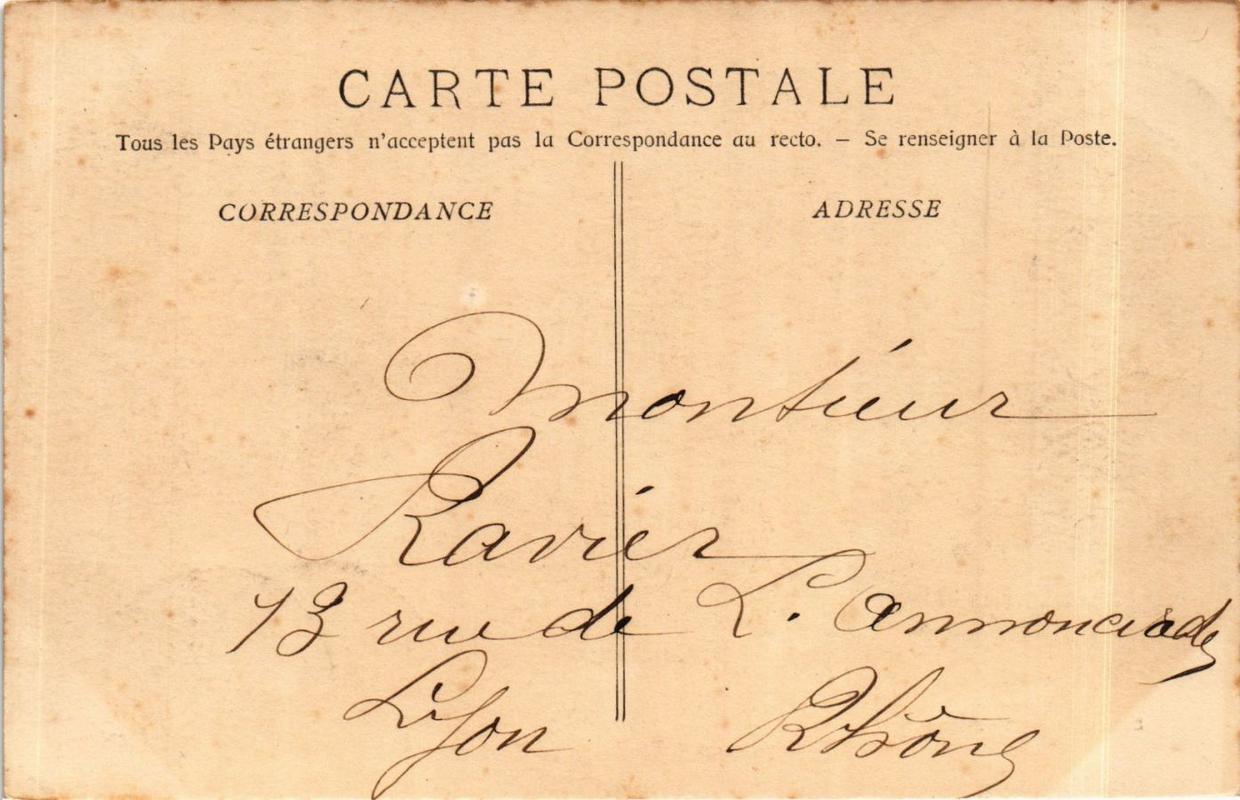 CARTE POSTALE
Tous les Pays étrangers n'acceptent pas la Correspondance au recto. — Se renseigner à la Poste.
CORRESPONDANCE
ADRESSE
Monsieur
Ravier
13 rue de L. Annonciade
Lyon Rhône